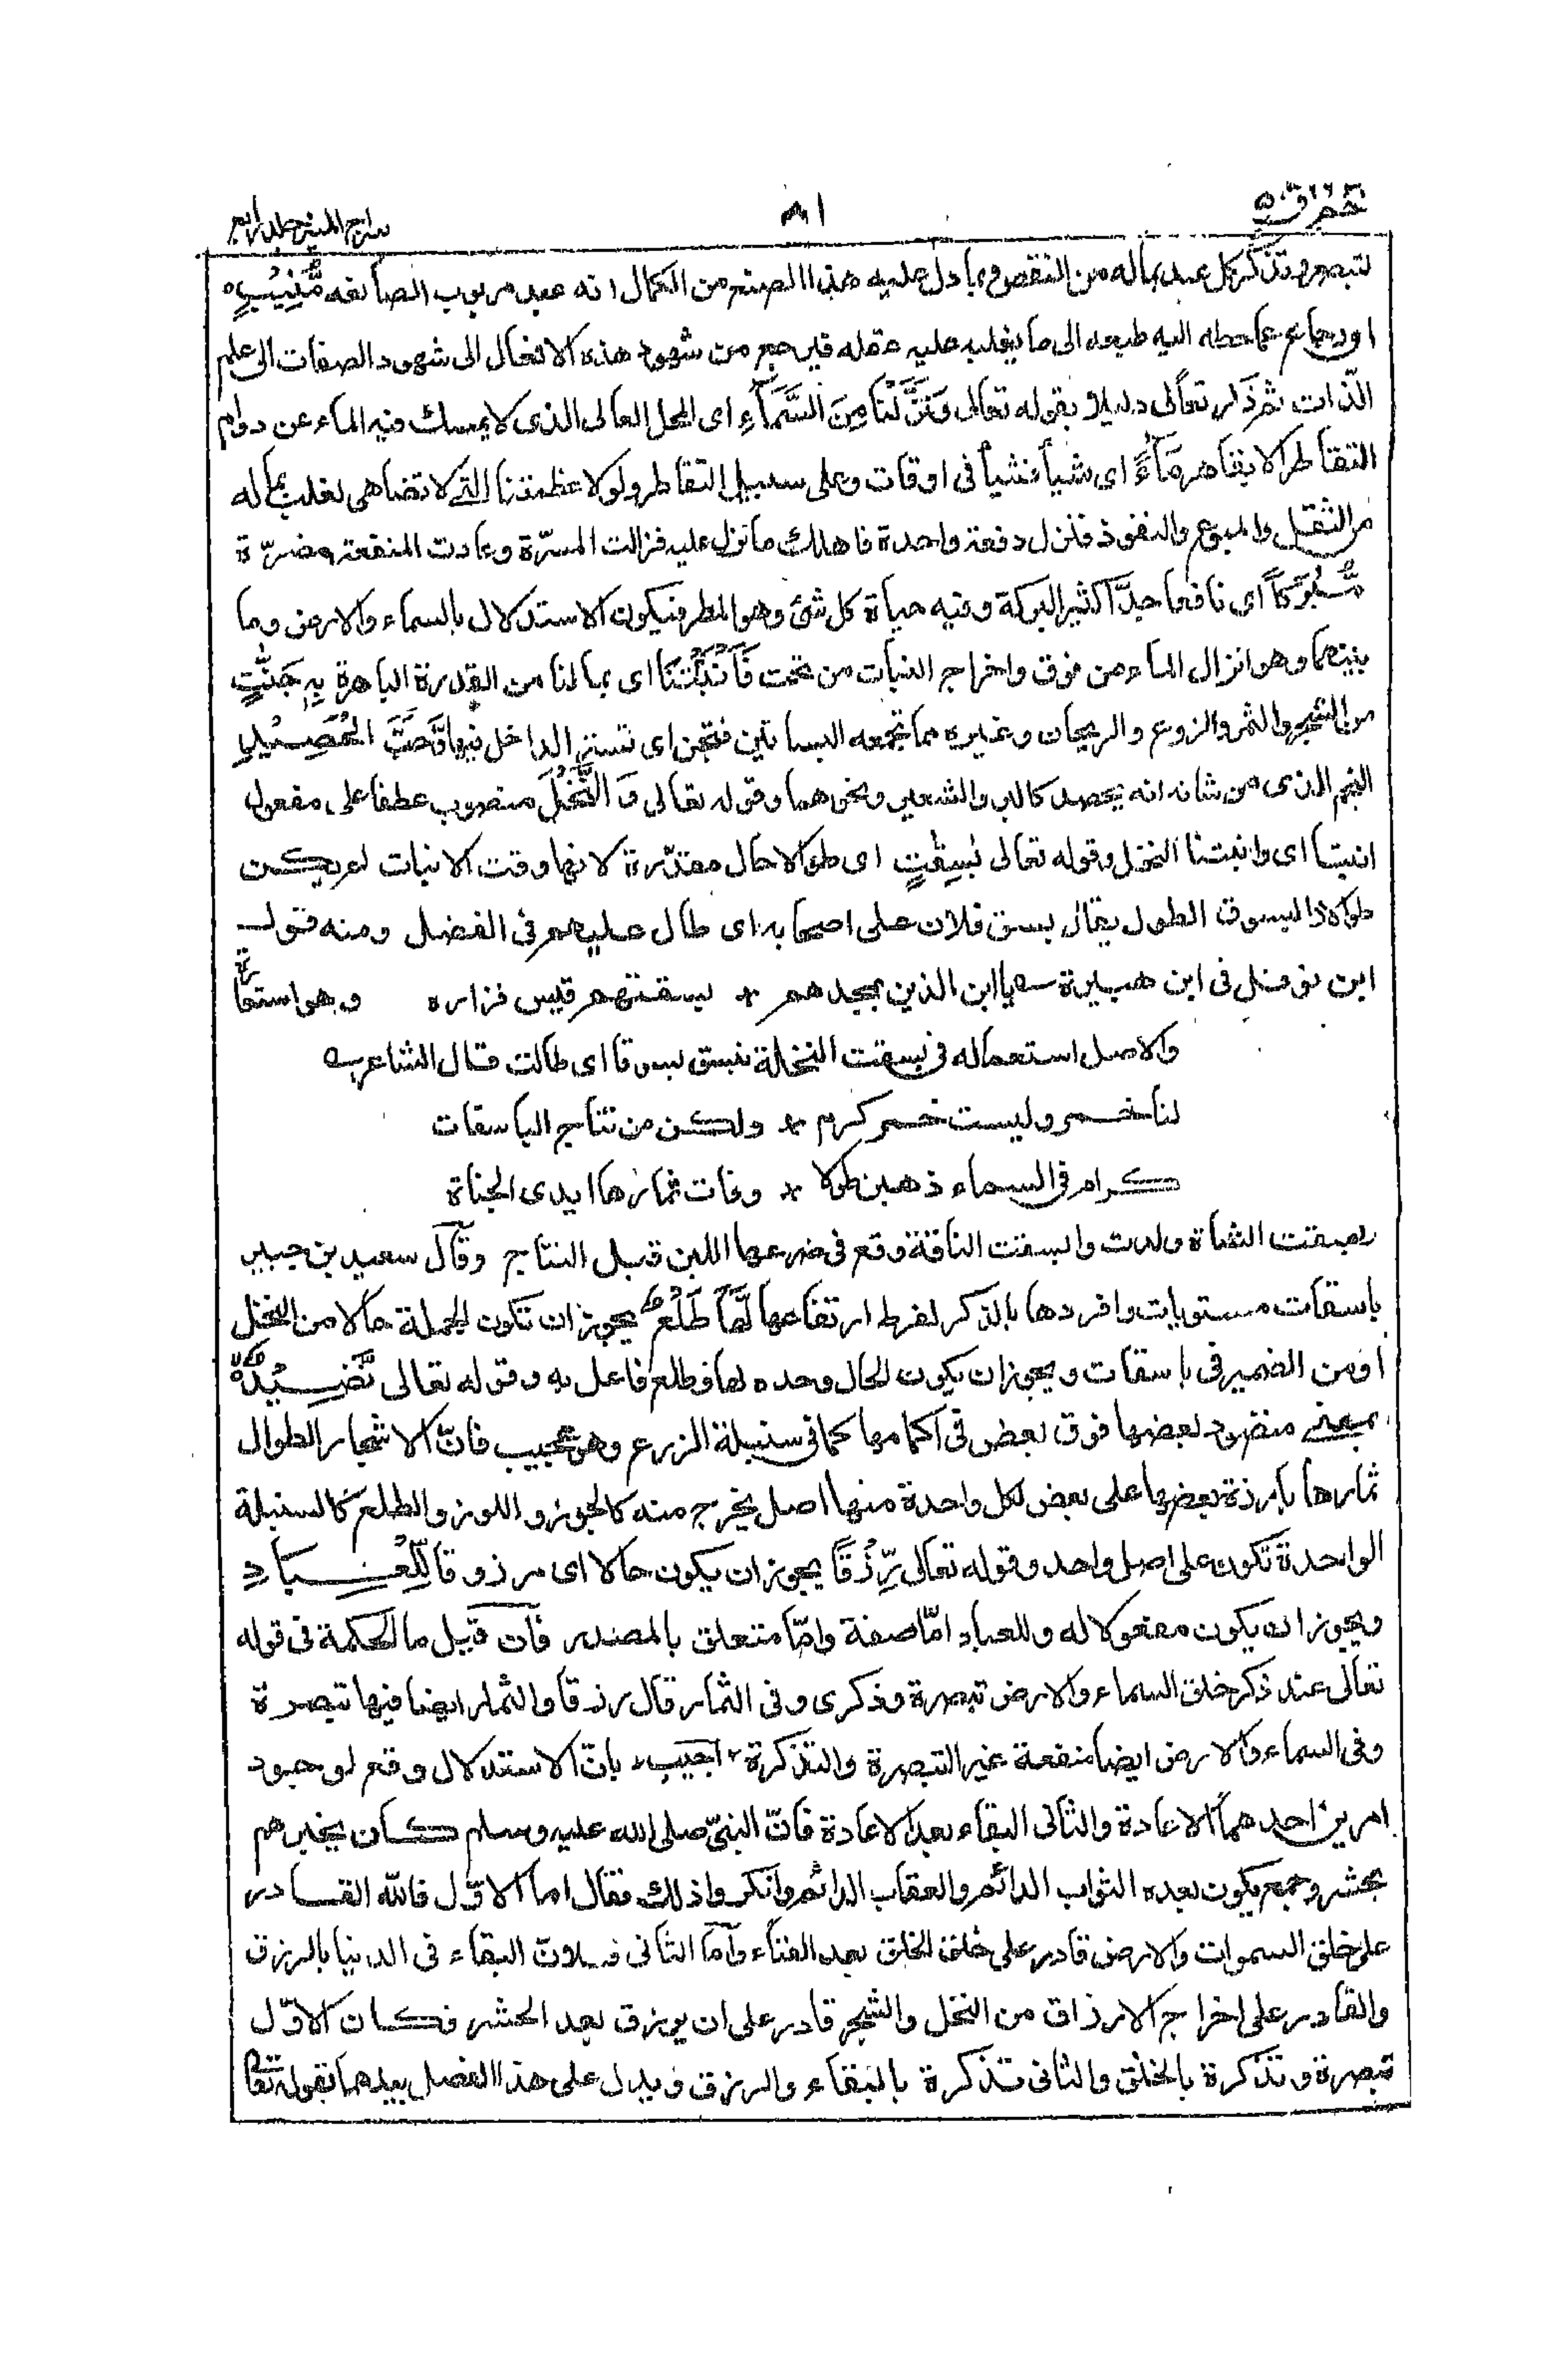 حٰم ق ٥٠
٨١
سراج المنير جلد رابع
لتبصر وتذكر كل عبد بما له من النقص وبما دل عليه هذا الصنع من الكمال انه عبد مربوب لصانعه مُّنِيْبٍ ه
اى رجاع عما حطه اليه طبعه الى ما يغلبه عليه عقله فيرجع من شهود هذه الافعال الى شهود الصفات الى علم
الذّات ثم ذكر تعالى دليلا بقوله تعالى وَنَزَّلْنَا مِنَ السَّمَآءِ اى المحل العالى الذى لا يمسك فيه الماء عن دوام
التقاطر الا بقاهر مَآءً اى شيأ فشيأ فى اوقات وعلى سبيل التقاطر ولولا عظمتنا التى لا تضاهى لغلب بما له
من الثقل والميوع والنفوذ فنزل دفعة واحدة فاهلك ما نزل عليه فزالت المسرّة وعادت المنفعة مضرّة
مُّبٰرَكًا اى نافعا جدّا كثير البركة وفيه حياة كل شئ وهو المطر فيكون الاستدلال بالسماء والارض وما
بينهما وهو انزال الماء من فوق واخراج النبات من تحت فَاَنْۢبَتْنَا اى بما لنا من القدرة الباهرة بِهٖ جَنّٰتٍ
من الشجر والثمر والزرع والريحان وغيره مما تجمعه البساتين فتجن اى تستر الداخل فيها وَّحَبَّ الْحَصِيْدِ
النجم الذى من شانه انه يحصد كالبر والشعير ونحوهما وقوله تعالى وَ النَّخْلَ منصوب عطفا على مفعول
انبتنا اى وانبتنا النخل وقوله تعالى بٰسِقٰتٍ اى طوالا حال مقدّرة لانها وقت الانبات لم يكن
طوالا والبسوق الطول يقال بسق فلان على اصحابه اى طال عليهم فى الفضل ومنه قول
ابن نوفل فى ابن هبيرة سه يا ابن الذين بمجدهم * بسقتهم قيس فزاره وهو استعارة
والاصل استعماله فى بسقت النخلة تبسق بسوقا اى طالت قال الشاعر سه
لنا خمر وليست خمر كرم * ولكن من نتاج الباسقات
كرام فى السماء ذهبن طولا * وفات ثمارها ايدى الجناة
وبسقت الشاة ولدت وابسقت الناقة وقع فى ضرعها اللبن قبل النتاج وقال سعيد بن جبير
باسقات مستويات وافردها بالذكر لفرط ارتفاعها لَّهَا طَلْعٌ يجوز ان تكون الجملة حالا من النخل
او من الضمير فى باسقات ويجوز ان يكون الحال وحده لها وطلع فاعل به وقوله تعالى نَّضِيْدٌ
بمعنى منضود بعضها فوق بعض فى اكمامها كما فى سنبلة الزرع وهو عجيب فانّ الاشجار الطوال
ثمارها بارزة بعضها على بعض لكل واحدة منها اصل يخرج منه كالجوز واللوز والطلع كالسنبلة
الواحدة تكون على اصل واحد وقوله تعالى رِّزْقًا يجوز ان يكون حالا اى مرزوقا لِّلْعِبَادِ
ويجوز ان يكون مفعولا له وللعباد امّا صفة وامّا متعلق بالمصدر فان قيل ما الحكمة فى قوله
تعالى عند ذكر خلق السماء والارض تبصرة وذكرى وفى الثمار قال رزقا والثمار ايضا فيها تبصرة
وفى السماء والارض ايضا منفعة غير التبصرة والتذكرة اجيب بانّ الاستدلال وقع لوجود
امرين احدهما الاعادة والثانى البقاء بعد الاعادة فانّ النبىّ صلى الله عليه وسلم كان يخبرهم
بحشر وجمع يكون بعده الثواب الدائم والعقاب الدائم وانكروا ذلك فقال اما الاوّل فالله القادر
على خلق السموات والارض قادر على خلق الخلق بعد الفناء وامّا الثانى فلانّ البقاء فى الدنيا بالرزق
والقادر على اخراج الارزاق من النخل والشجر قادر على ان يرزق بعد الحشر فكان الاوّل
تبصرة وتذكرة بالخلق والثانى تذكرة بالبقاء والرزق ويدل على هذا الفصل بينهما بقوله تعا